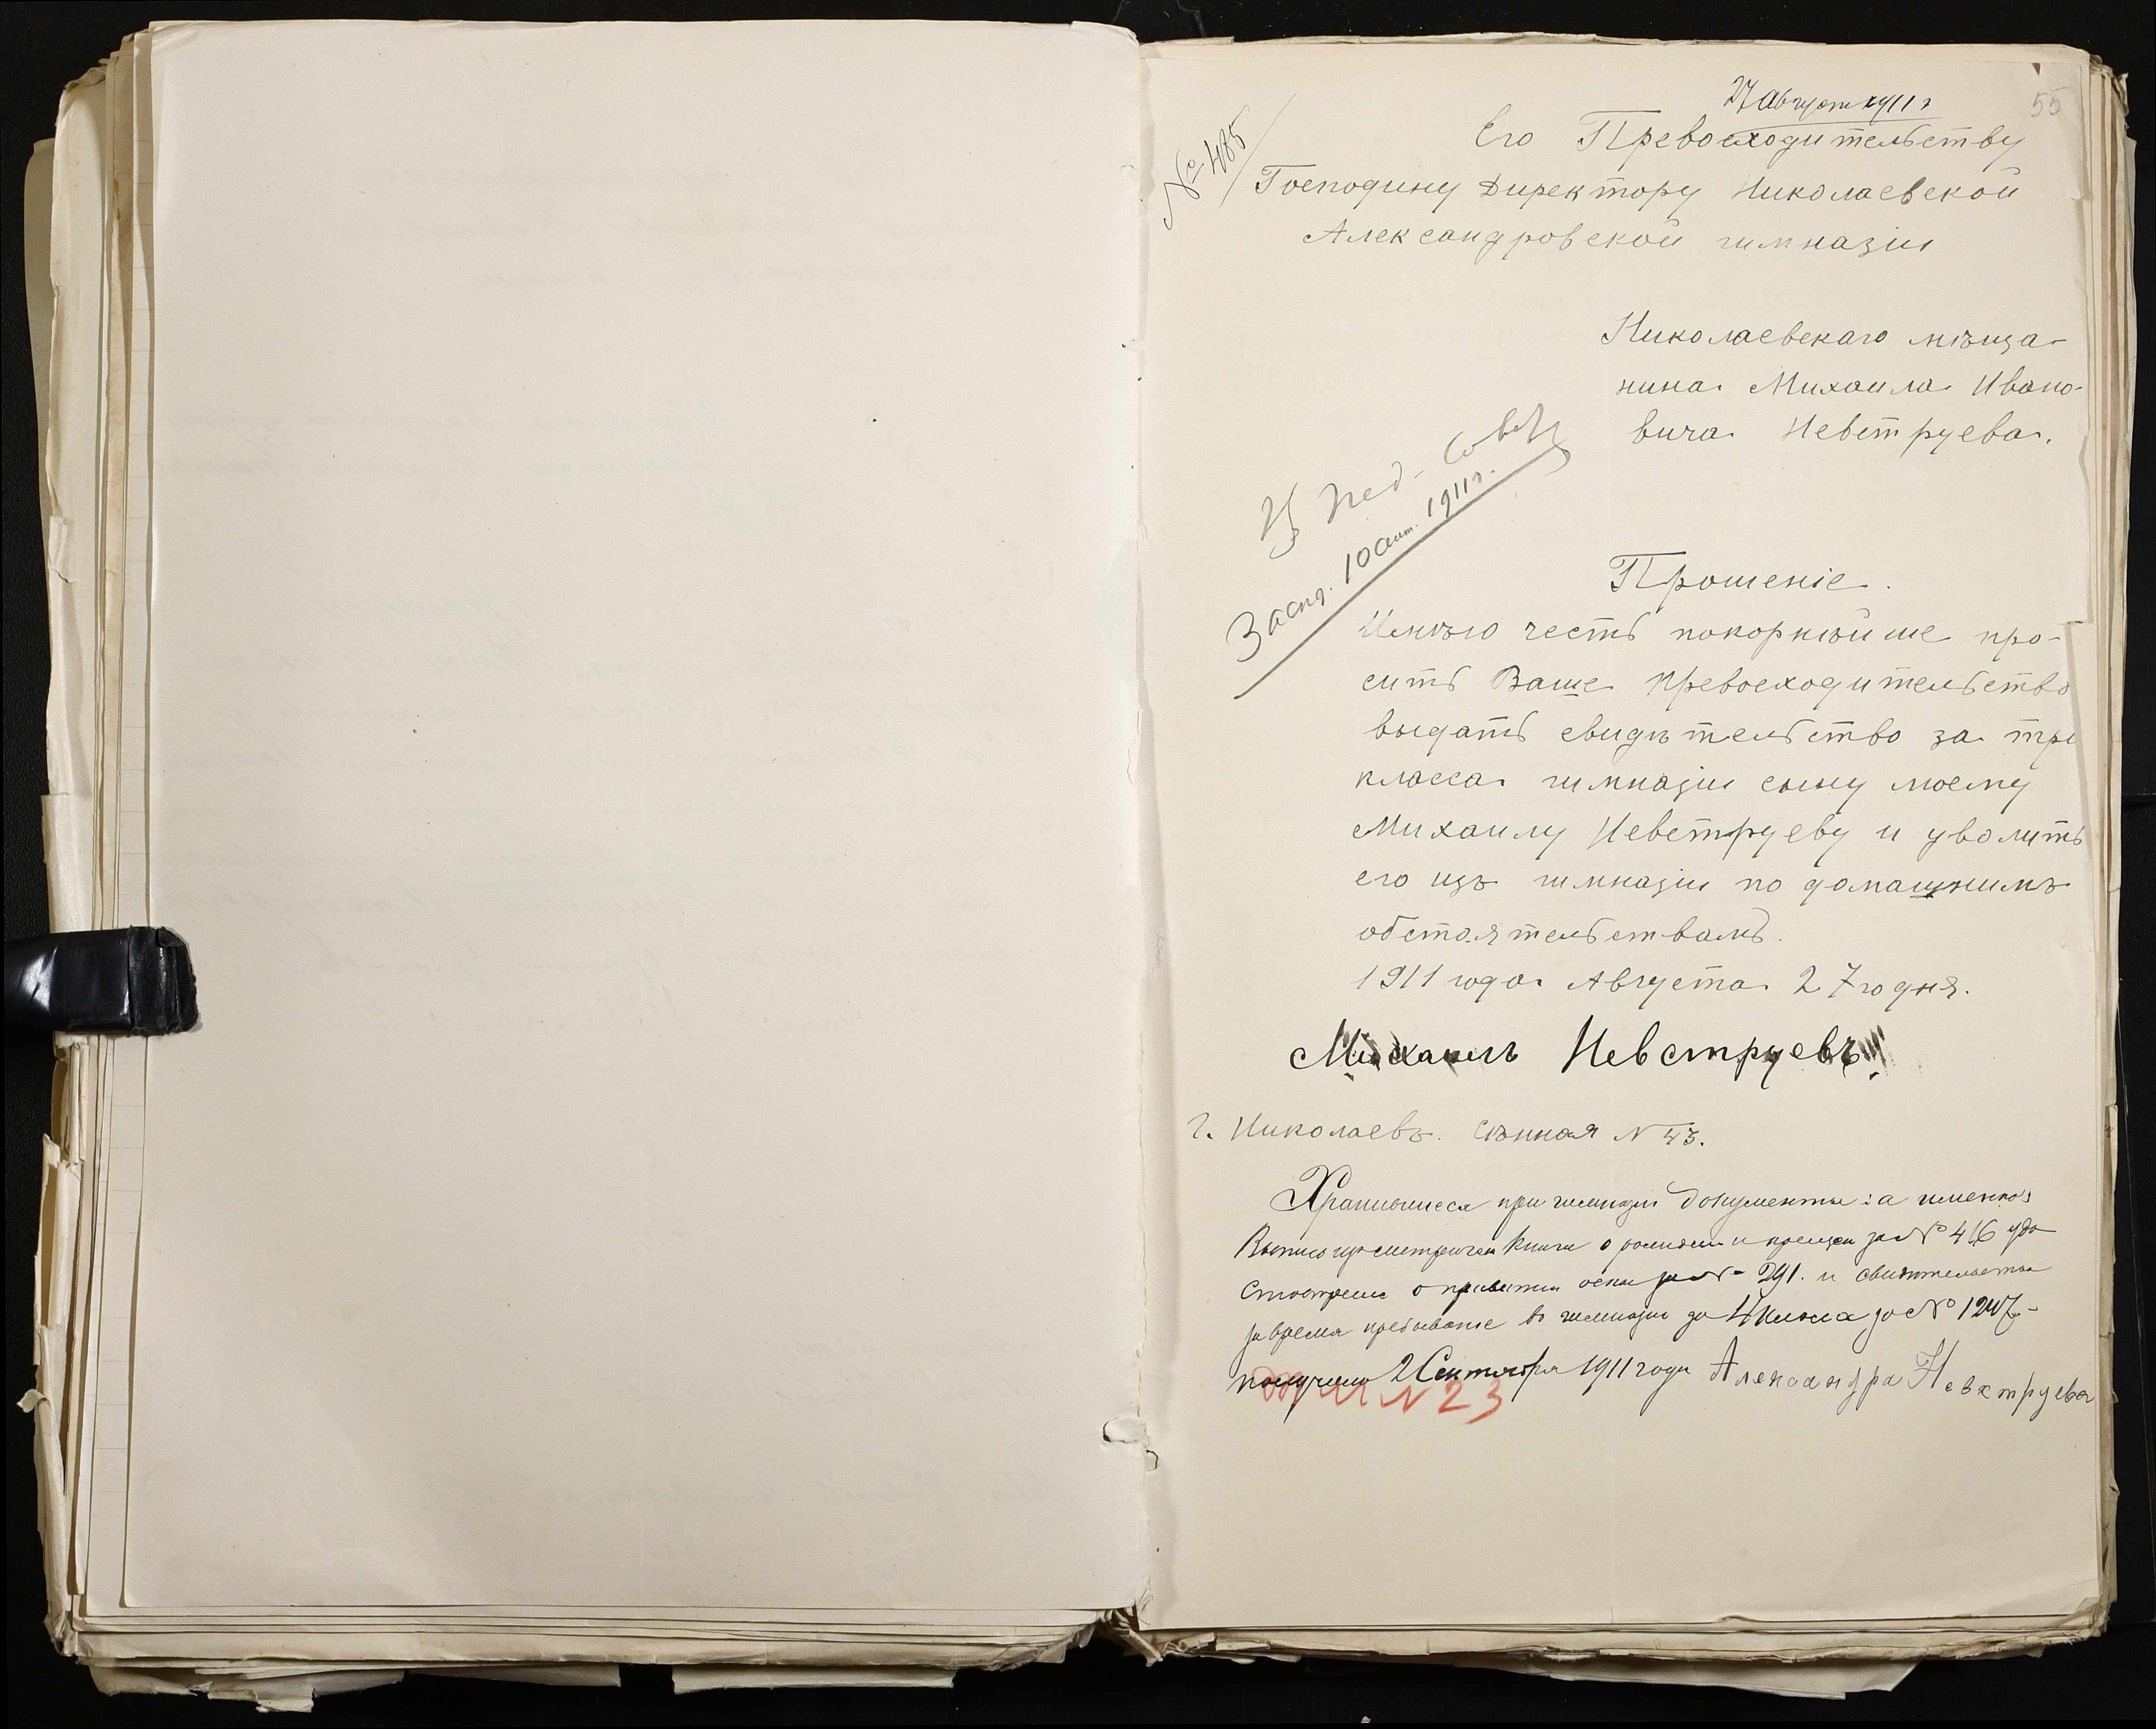 27 Августа 1911 г
55
№ 485
Его Превосходительству
Господину Директору Николаевской
Александровской гимназіи
Николаевскаго мѣща-
нина Михаила Ивано-
вича Невструева.
Пед. Совѣт
10 Сент. 1911 г.
Прошеніе.
Имѣю честь покорнѣйше про-
сить Ваше Превосходительство
выдать свидѣтельство за три
класса гимназіи сыну моему
Михаилу Невструеву и уволить
его изъ гимназіи по домашнимъ
обстоятельствамъ.
1911 года Августа 27го дня.
Михаилъ Невструевъ
г. Николаевъ. Сѣнная № 43.
Хранившиеся при гимназіи документы: а именно:
книги о рожденіи и крещен за № 416 удо
о оспы за № 291. и свидѣтельство
за время пребыванія въ гимназіи до 4 класса за № 1247-
получено 2 Сентября 1911 года Александра Невструева
№ 23